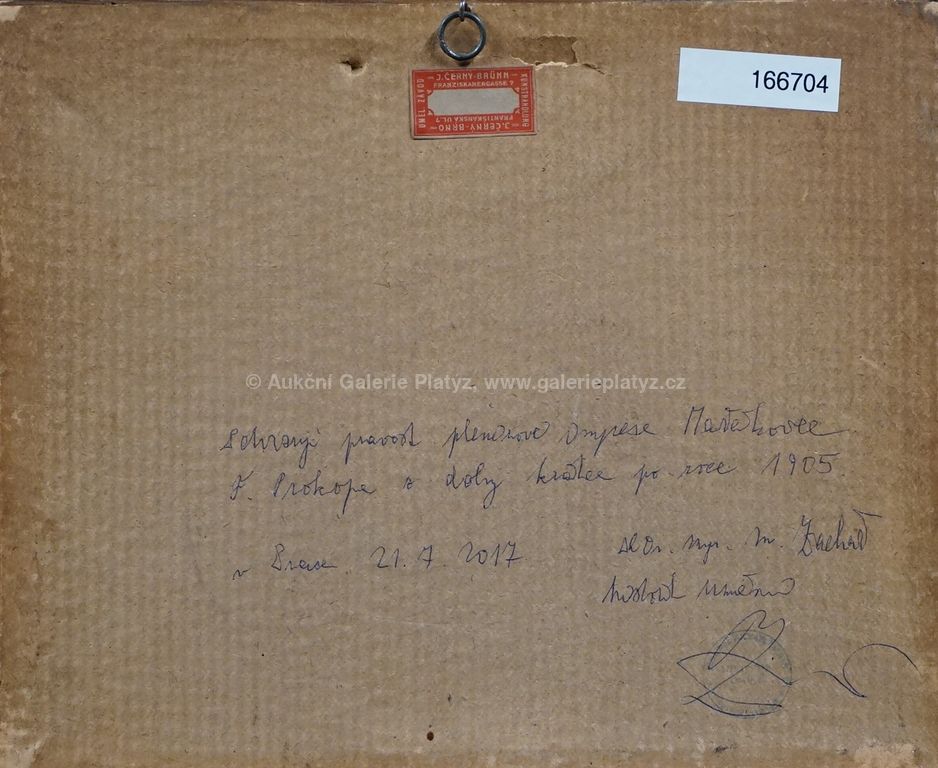 J. ČERNÝ-BRÜNN
FRANZISKANERGASSE 7
UMĚL. ZÁVOD
KUNSTHANDLUNG
J. ČERNÝ-BRNO
FRANTIŠKÁNSKÁ UL. 7
166704
© Aukční Galerie Platyz, www.galerieplatyz.cz
pravost plenérové Imprese
F. Prokopa z doby krátce po roce 1905.
v Praze 21. 7. 2017
PhDr. Mgr. M. Zachař
historik umění